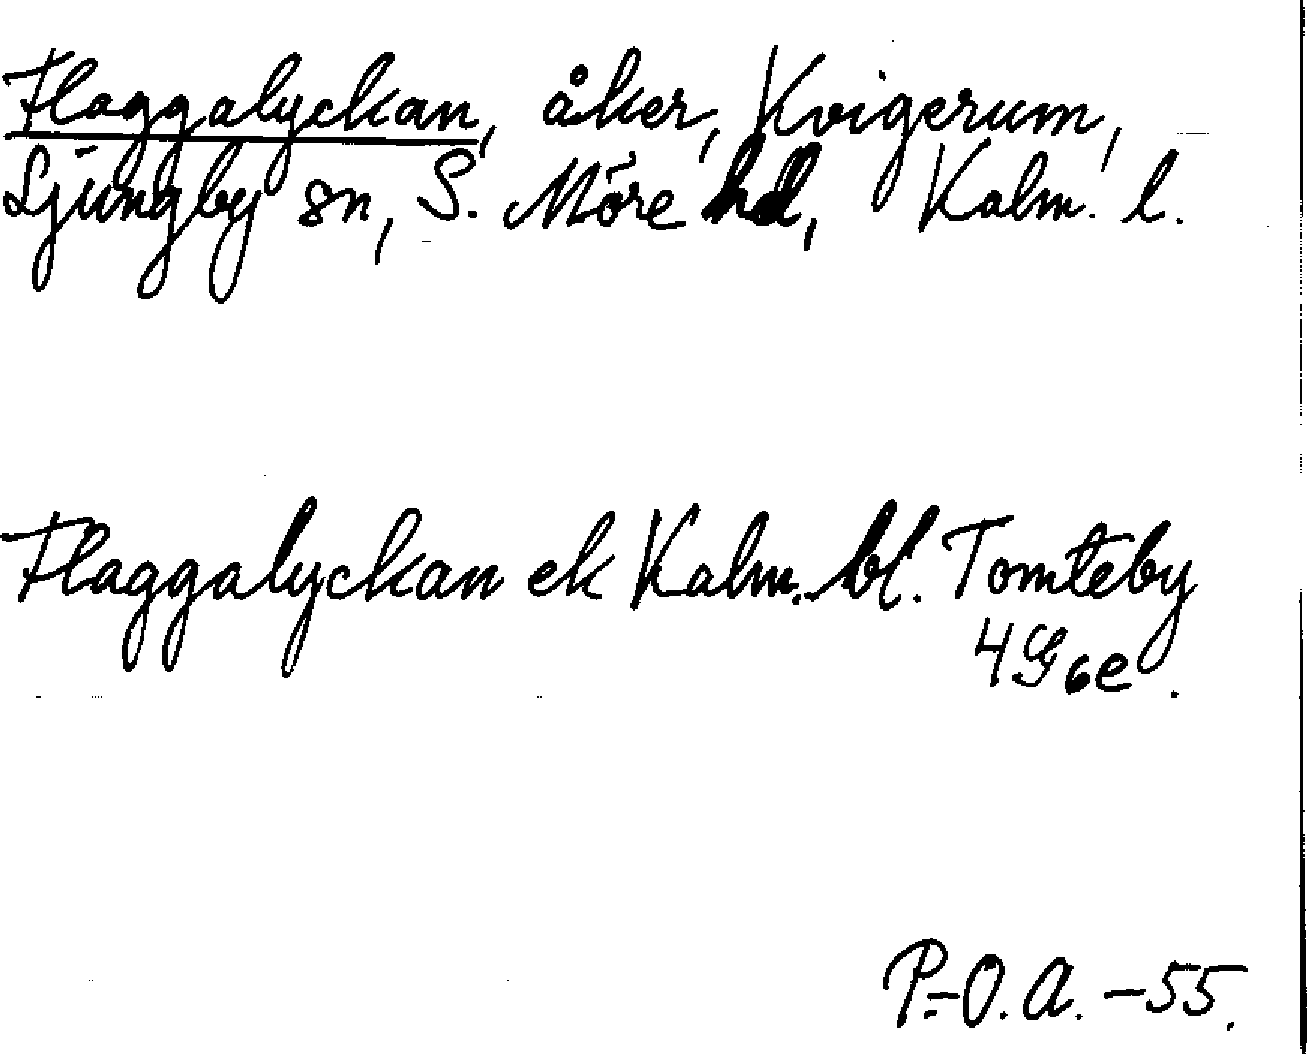 Flaggalyckan, åker, Kvigerum,
Ljungby sn, S. Möre hd, Kalm. l.
Flaggalyckan ek Kalm. bl. Tomteby
4G6e.
P.-O.A. -55.